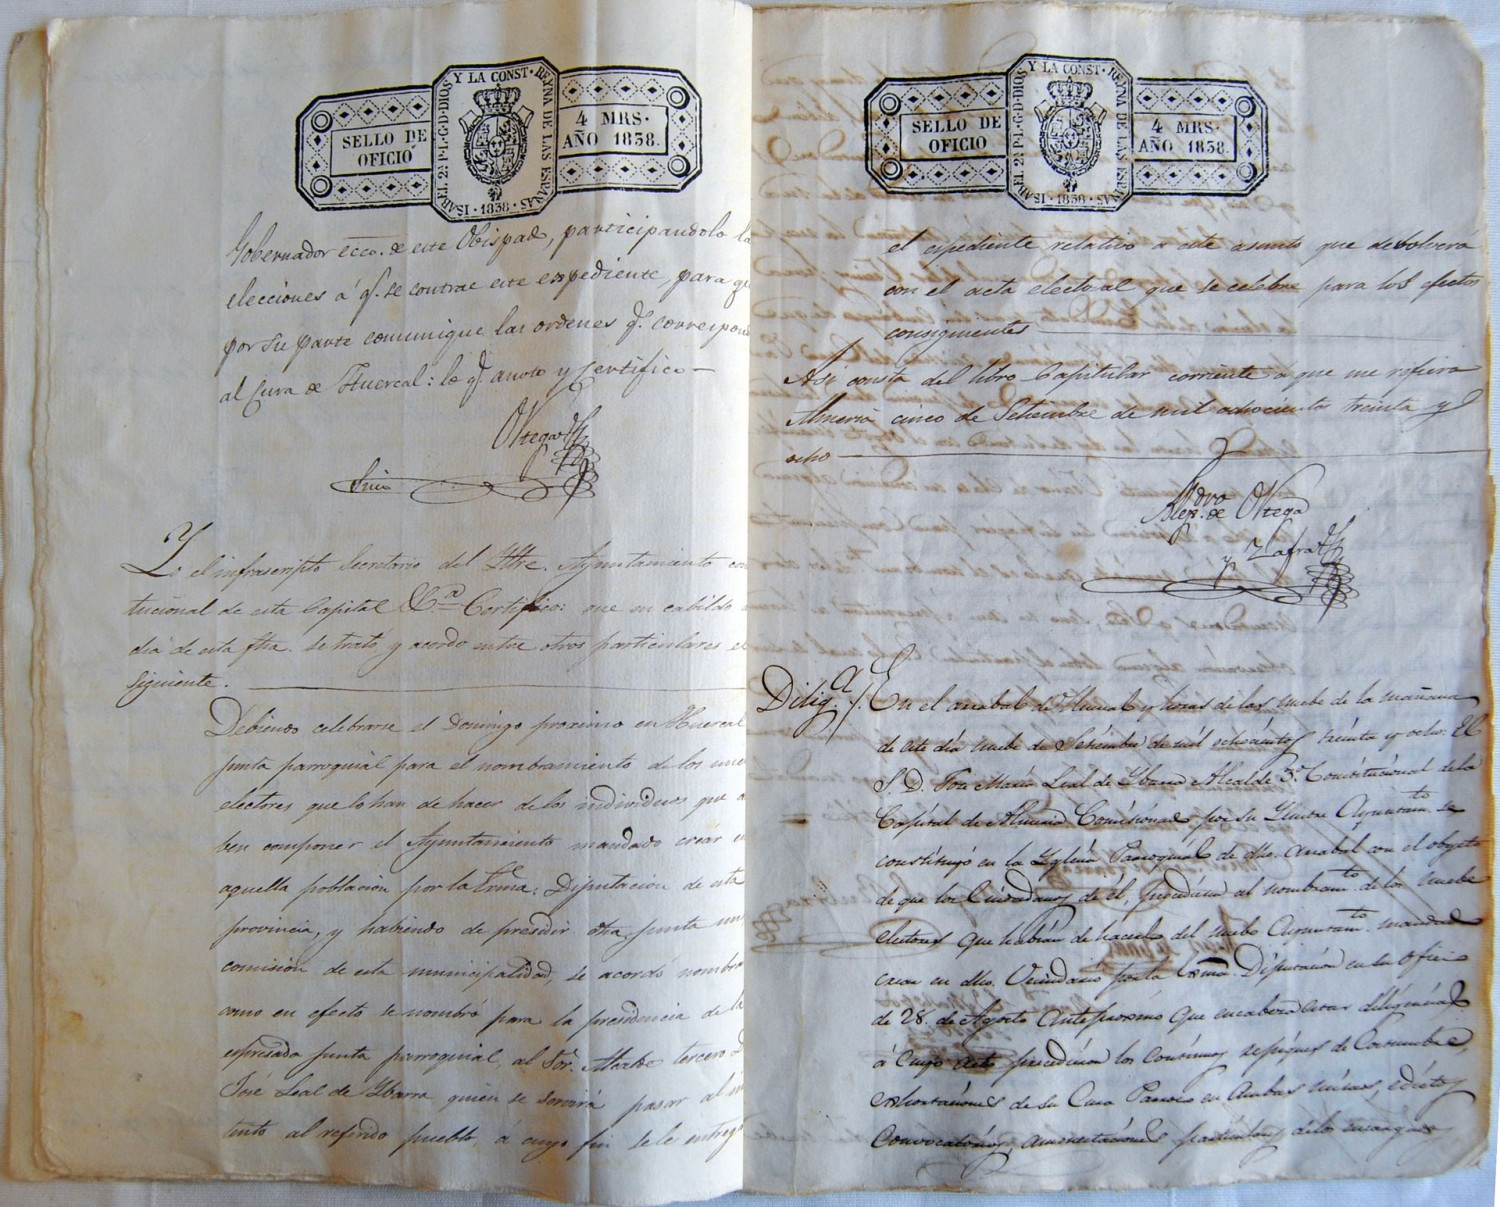 Y LA CONST. REYNA DE LAS ESPAÑAS
ISABEL 2ª P. L. G. D. DIOS
SELLO DE
OFICIO
4 MRS.
AÑO 1838.
1838
Gobernador ecco. de este Obispado, participandole la
elecciones á q.e se contrae este expediente, para q
por su parte comunique las ordenes q.e correspon
al Cura de Huercal: lo q.e anoto y certifico
Ortega
Yo el infrascripto Secretario del Iltre. Ayuntamiento con
tucional de esta Capital &.a Certifico: que en cabildo
dia de esta fha. se trató y acordo entre otros particulares el
siguiente.
Debiendo celebrarse el Domingo proximo en Huercal
junta parroquial para el nombramiento de los nue
electores que lo han de hacer de los individuos que
ben componer el Ayuntamiento mandado crear en
aquella poblacion por la Exma. Diputacion de esta
provincia, y habiendo de presidir dha. junta un
comision de esta municipalidad, se acordó nombra
como en efecto se nombró para la presidencia de la
espresada junta parroquial, al Sor. Alcalde tercero D
José Leal de Ybarra quien se servirá pasar al in
tento al referido pueblo, á cuyo fin se le entreg
Y LA CONST. REYNA DE LAS ESPAÑAS
ISABEL 2ª P. L. G. D. DIOS
SELLO DE
OFICIO
4 MRS.
AÑO 1838.
1838
el espediente relativo a este asunto que debolverá
con el acta electoral que se celebre para los efectos
consiguientes
Asi consta del libro Capitular corriente a que me refiero
Almeria cinco de Setiembre de mil ochocientos treinta y
ocho
Ortega
y Zafra
Dilig.a En el arrabal de Huercal y horas de las nuebe de la mañana
de este dia nuebe de Setiembre de mil ochocientos treinta y ocho: El
S. D. José Maria Leal de Ybarra Alcalde 3.o Constitucional de la
Capital de Almeria Comisionado por su Ylustre Ayuntam.to se
constituyó en la Yglesia Parroquial de dho. arrabal con el objeto
de que los Ciudadanos de el, procedieran al nombram.to de los nuebe
electores que habian de hacer el del nuebo Ayuntam.to mandado
crear en dho. Vecindario por la Exma. Diputacion en su oficio
de 28. de Agosto anteproximo que encabeza estas diligencias
á cuyo acto precedieron los continuos repiques de Costumbre,
exhortaciones de su Cura Parroco en ambas misas, edictos
Convocatorios, amonestaciones particulares de los encargados